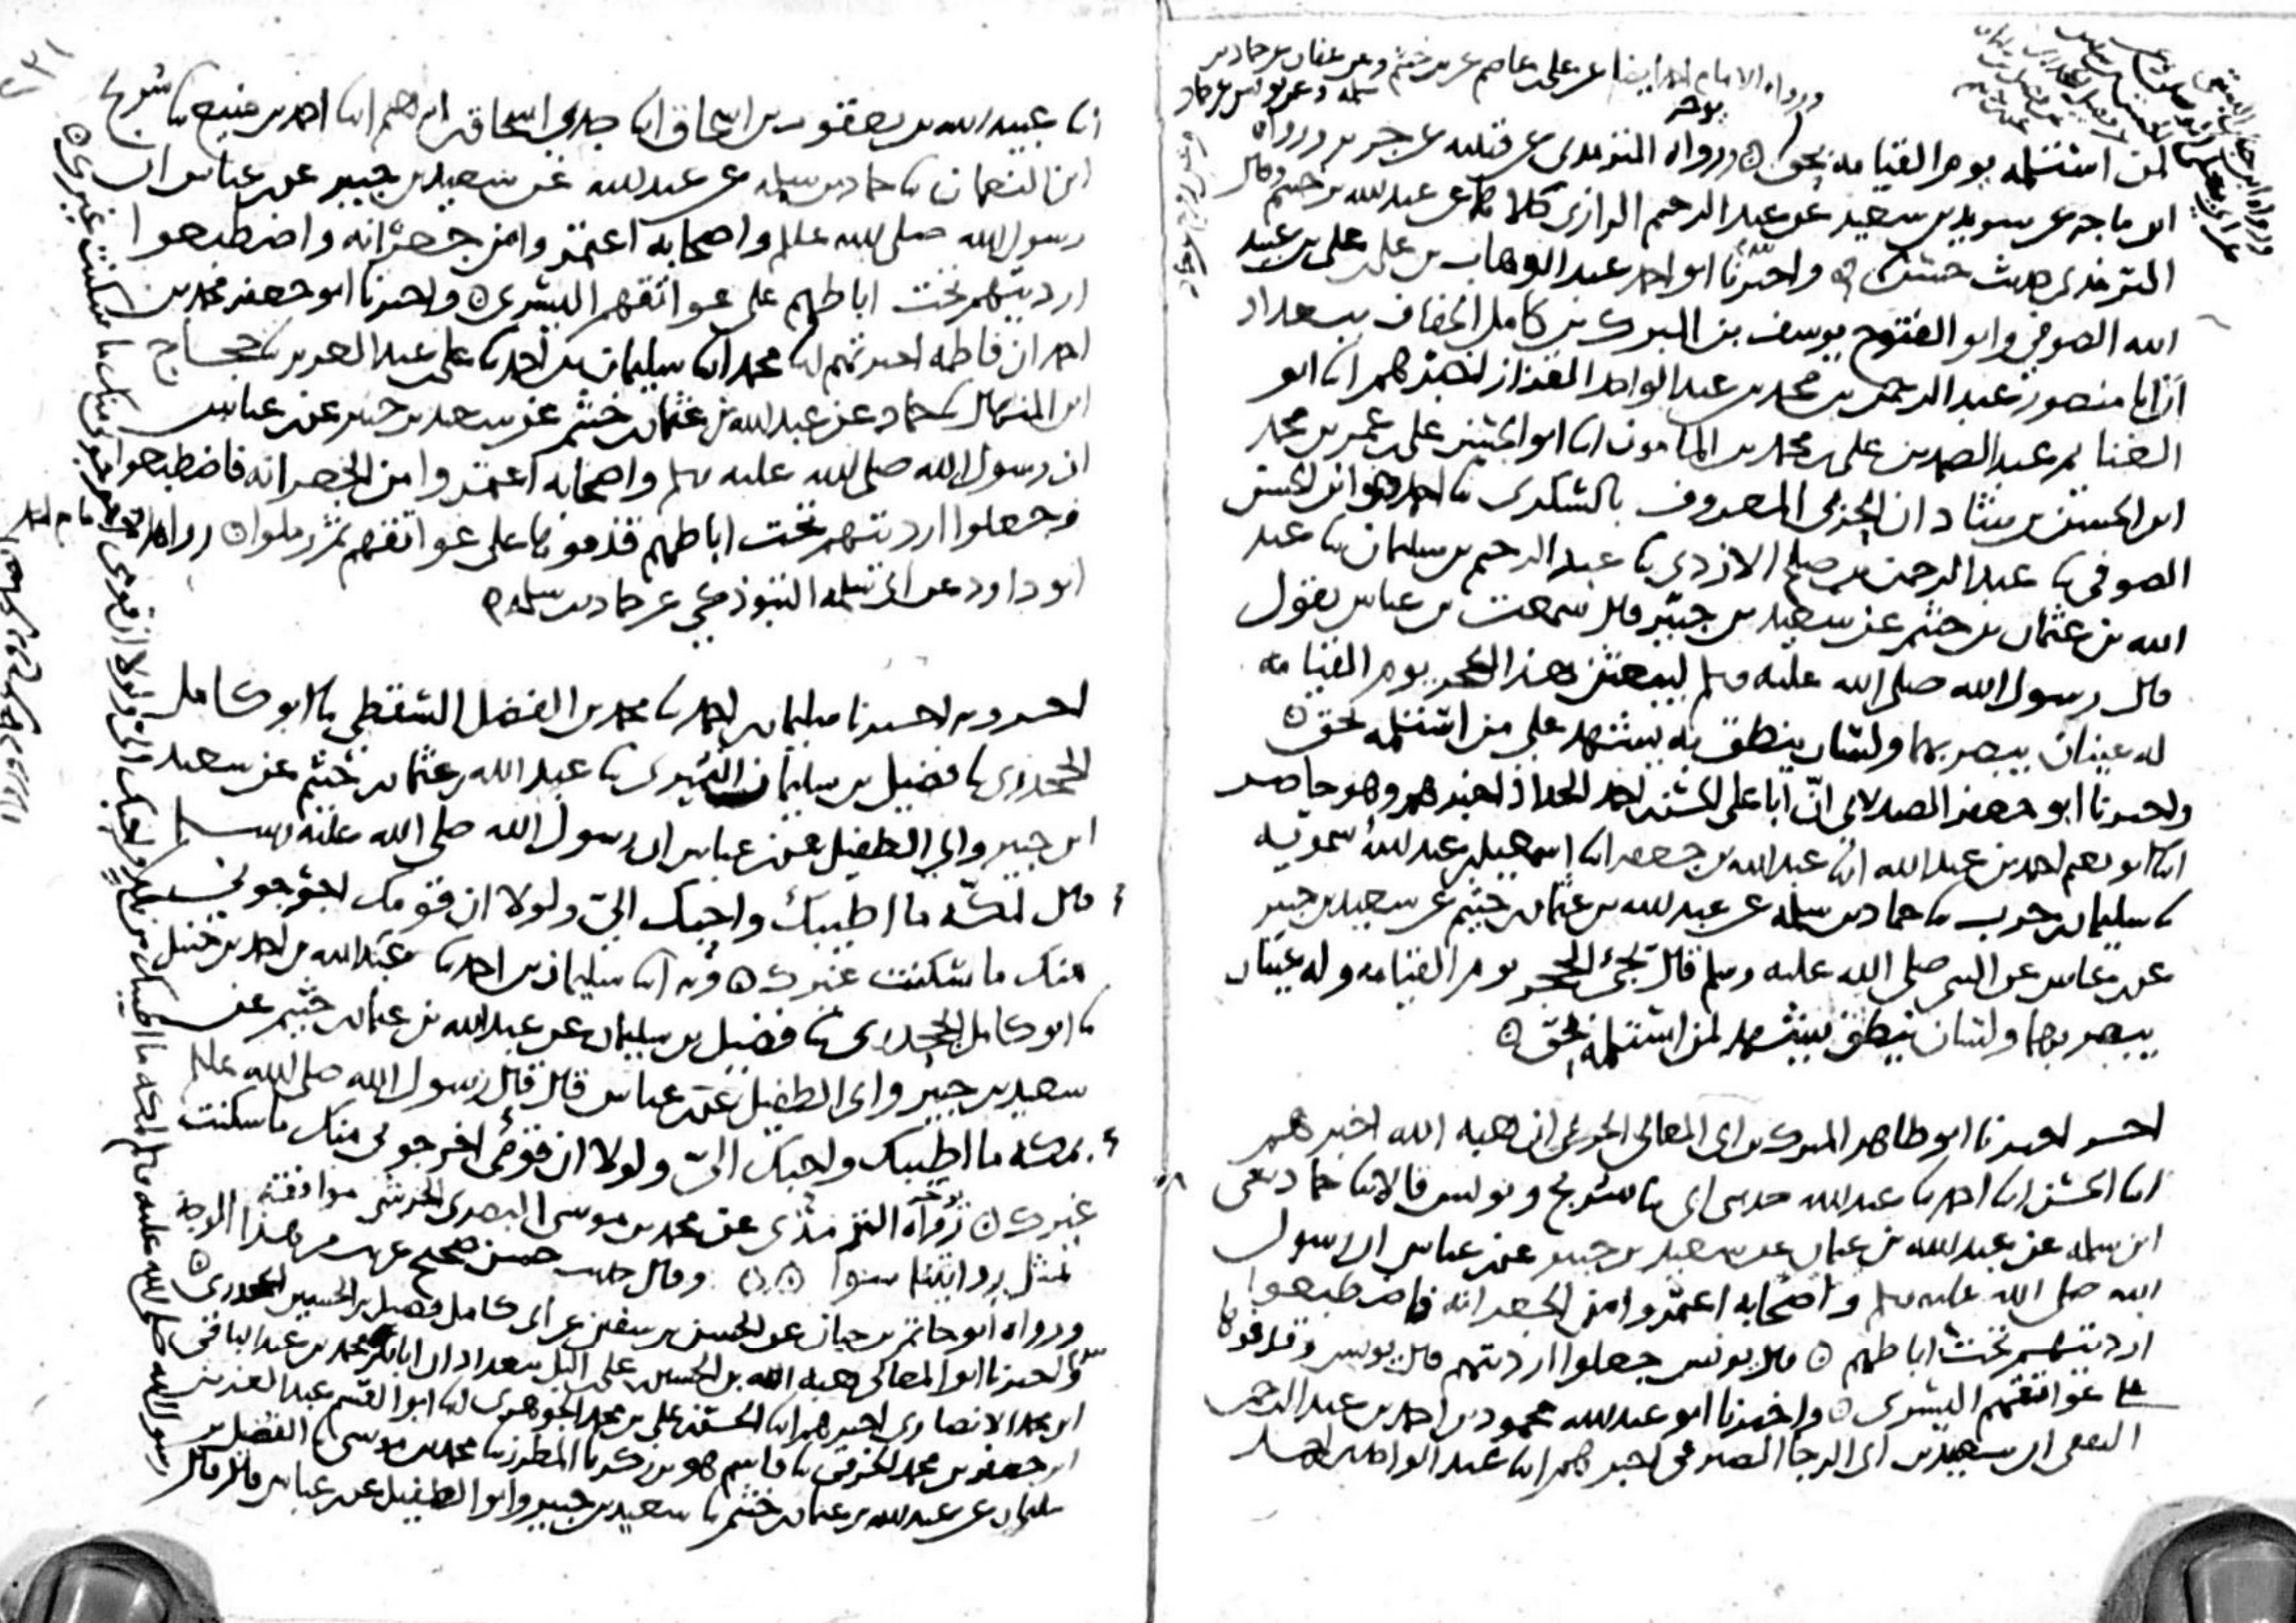 ورواه الامام احمد ايضا عن علي بن عاصم عن بن خثيم وعن عفان عن حماد بن
سلمة وعن يونس عن حماد
لمن استلمه يوم القيامة بحق ورواه الترمذي عن قتيبة عن جرير ورواه
ابن ماجه عن سويد بن سعيد عن عبد الرحيم الرازي كلاهما عن عبد الله بن خثيم وقال
الترمذي حديث حسن واخبرنا ابو احمد عبد الوهاب بن علي بن علي بن عبيد
الله الصوفي وابو الفتوح يوسف بن المبرك بن كامل الخفاف ببغداد
ان ابا منصور عبد الرحمن بن محمد بن عبد الواحد القزاز اخبرهم ابنا ابو
الغنايم عبد الصمد بن علي بن محمد بن المامون ابنا ابو الحسن علي بن عمر بن محمد
ابن الحسن بن شاذان الحربي المعروف بالسكري نا احمد هو ابن الحسن
الصوفي نا عبد الرحمن بن صلح الازدي نا عبد الرحيم بن سليمان نا عبد
الله بن عثمان بن خثيم عن سعيد بن جبير قال سمعت بن عباس يقول
قال رسول الله صلى الله عليه وسلم ليبعثن هذا الحجر يوم القيامة
له عينان يبصر بهما ولسان ينطق به يشهد على من استلمه بحق
واخبرنا ابو جعفر الصيدلاني ان ابا علي الحسن بن احمد الحداد اخبرهم وهو حاضر
ابنا ابو نعيم احمد بن عبد الله ابنا عبد الله بن جعفر ابنا اسمعيل بن عبد الله سمويه
نا سليمان بن حرب نا حماد بن سلمة عن عبد الله بن عثمان بن خثيم عن سعيد بن جبير
عن بن عباس عن النبي صلى الله عليه وسلم قال يجئ الحجر يوم القيامة وله عينان
يبصر بهما ولسان ينطق يشهد لمن استلمه بحق
اخر اخبرنا ابو طاهر المبرك بن ابي المعالي الحريمي ان هبة الله اخبرهم
ابنا الحسن ابنا احمد نا عبد الله حدثني ابي نا سريج ويونس قالا نا حماد يعني
ابن سلمة عن عبد الله بن عثمان عن سعيد بن جبير عن بن عباس ان رسول
الله صلى الله عليه وسلم واصحابه اعتمروا من الجعرانة فاضطبعوا
ارديتهم تحت اباطهم قال يونس جعلوا ارديتهم قال يونس وقذفوها
على عواتقهم اليسرى واخبرنا ابو عبد الله محمود بن احمد بن عبد الرحمن
الثقفي ان سعيد بن ابي الرجا الصيرفي اخبرهم ابنا عبد الواحد بن احمد
ابنا عبيد الله بن يعقوب بن اسحاق ابنا جدي اسحاق بن ابراهيم ابنا احمد بن منيع نا سريج
ابن النعمان نا حماد بن سلمة عن عبد الله عن سعيد بن جبير عن بن عباس ان
رسول الله صلى الله عليه وسلم واصحابه اعتمروا من جعرانة واضطبعوا
ارديتهم تحت اباطهم على عواتقهم اليسرى واخبرنا ابو جعفر محمد بن
احمد ان فاطمة اخبرتهم ابنا محمد ابنا سليمان بن احمد نا علي بن عبد العزيز نا حجاج
ابن المنهال نا حماد عن عبد الله بن عثمان بن خثيم عن سعيد بن جبير عن بن عباس
ان رسول الله صلى الله عليه وسلم واصحابه اعتمروا من الجعرانة فاضطبعوا
وجعلوا ارديتهم تحت اباطهم قذفوها على عواتقهم ثم رملوا رواه
ابو داود عن ابي سلمة التبوذكي عن حماد بن سلمة
اخر وبه اخبرنا سليمان بن احمد نا محمد بن الفضل السقطي نا ابو كامل
الجحدري نا فضيل بن سليمان النميري نا عبد الله بن عثمان بن خثيم عن سعيد
ابن جبير وابي الطفيل عن بن عباس ان رسول الله صلى الله عليه وسلم
قال لمكة ما اطيبك واحبك الي ولولا ان قومك اخرجوني
منك ما سكنت غيرك وبه ابنا سليمان بن احمد نا عبد الله بن احمد بن حنبل
نا ابو كامل الجحدري نا فضيل بن سليمان عن عبد الله بن عثمان بن خثيم عن
سعيد بن جبير وابي الطفيل عن بن عباس قال قال رسول الله صلى الله عليه وسلم
لمكة ما اطيبك واحبك الي ولولا ان قومي اخرجوني منك ما سكنت
غيرك رواه الترمذي عن محمد بن موسى البصري الحرشي موافقة
بمثل روايتنا سوا وقال حديث حسن صحيح غريب من هذا الوجه
ورواه ابو حاتم بن حبان عن الحسن بن سفين عن ابي كامل فضيل بن الحسين الجحدري
واخبرنا ابو المعالي هبة الله بن الحسن بن علي البل ببغداد ان ابا بكر محمد بن عبد الباقي
ابن محمد الانصاري اخبرهم ابنا الحسن بن علي بن محمد الجوهري ابنا ابو القسم عبد العزيز بن
ابن جعفر بن محمد الخرقي نا قاسم هو بن زكريا المطرز نا محمد بن موسى نا الفضل بن
سليمان عن عبد الله بن عثمان بن خثيم نا سعيد بن جبير وابو الطفيل عن بن عباس قال قال
رسول الله صلى الله عليه وسلم لمكة ما اطيبك من بلد واحبك الي ولولا ان قومي اخرجوني منك ما سكنت غيرك